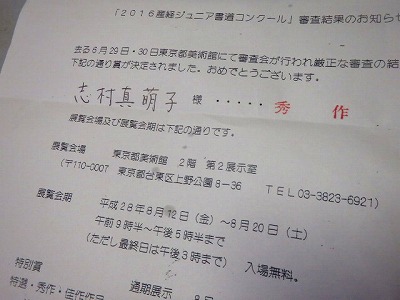 「2016産経ジュニア書道コンクール」審査結果のお知らせ
去る6月29日・30日東京都美術館にて審査会が行われ厳正な審査の結
下記の通り賞が決定されました。おめでとうございます。
志村真萌子 様 ・・・・・ 秀 作
展覧会場及び展覧会期は下記の通りです。
展覧会場 東京都美術館 2階 第2展示室
(〒110-0007 東京都台東区上野公園8-36 TEL03-3823-6921)
展覧会期 平成28年8月12日(金)~8月20日(土)
午前9時半~午後5時半まで
(ただし最終日は午後3時まで) 入場無料。
特別賞
特選・秀作・佳作作品 通期展示 8月